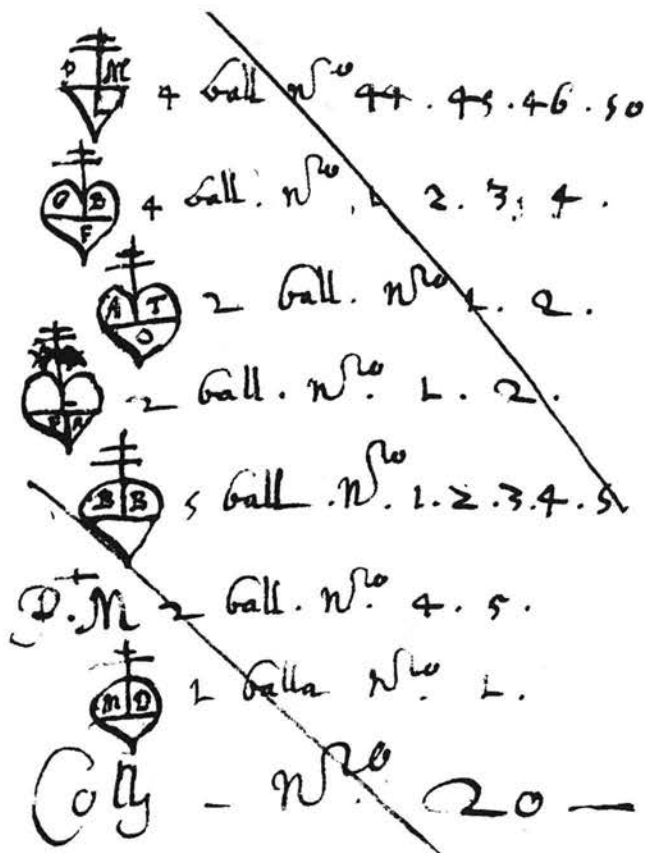 P M 4 ball nº 44 . 45 . 46 . 50
G B F 4 ball . nº . 1 . 2 . 3 . 4 .
A T O 2 ball . nº 1 . 2 .
2 ball . nº . 1 . 2 .
B B 5 ball . nº . 1 . 2 . 3 . 4 . 5
P . M 2 ball . nº . 4 . 5 .
M D 1 balla nº . 1 .
Colly - nº . 20 —